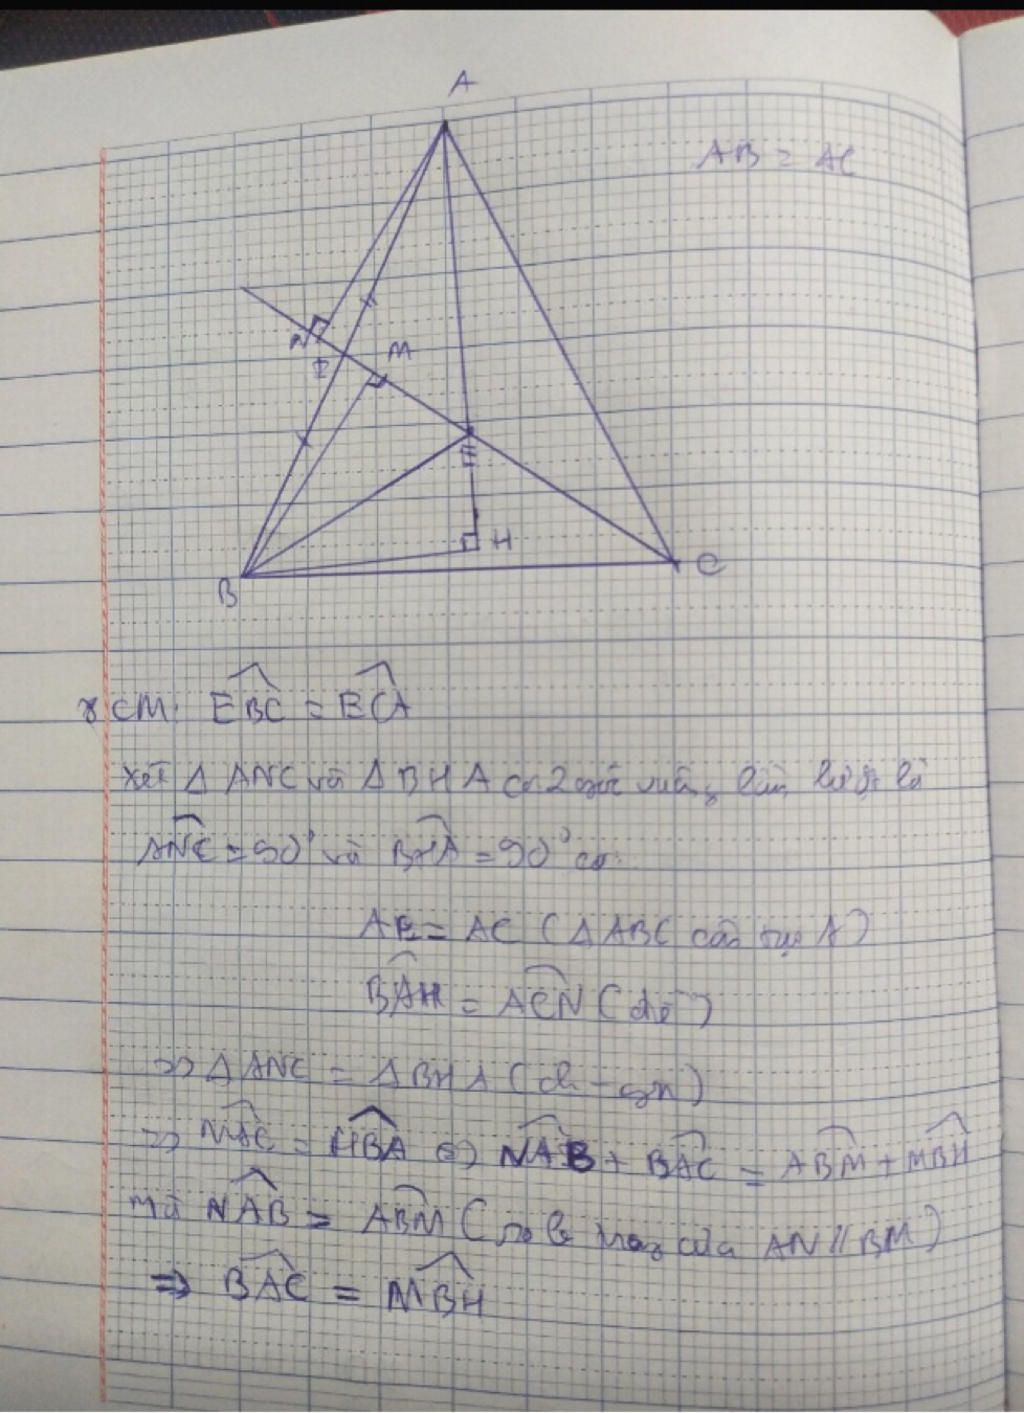 A
AB = AC
N
I
M
E
H
B
C
* CM: \widehat{EBC} = \widehat{ECA}
Xét Δ ANC và Δ BHA có 2 góc vuông lần lượt là
\widehat{ANC} = 90° và \widehat{BHA} = 90° có:
AB = AC (Δ ABC cân tại A)
\widehat{BAH} = \widehat{ACN} (đề)
=> Δ ANC = Δ BHA (ch - gn)
=> \widehat{NAC} = \widehat{HBA} <=> \widehat{NAB} + \widehat{BAC} = \widehat{ABM} + \widehat{MBH}
mà \widehat{NAB} = \widehat{ABM} (so le trong của AN // BM)
=> \widehat{BAC} = \widehat{MBH}